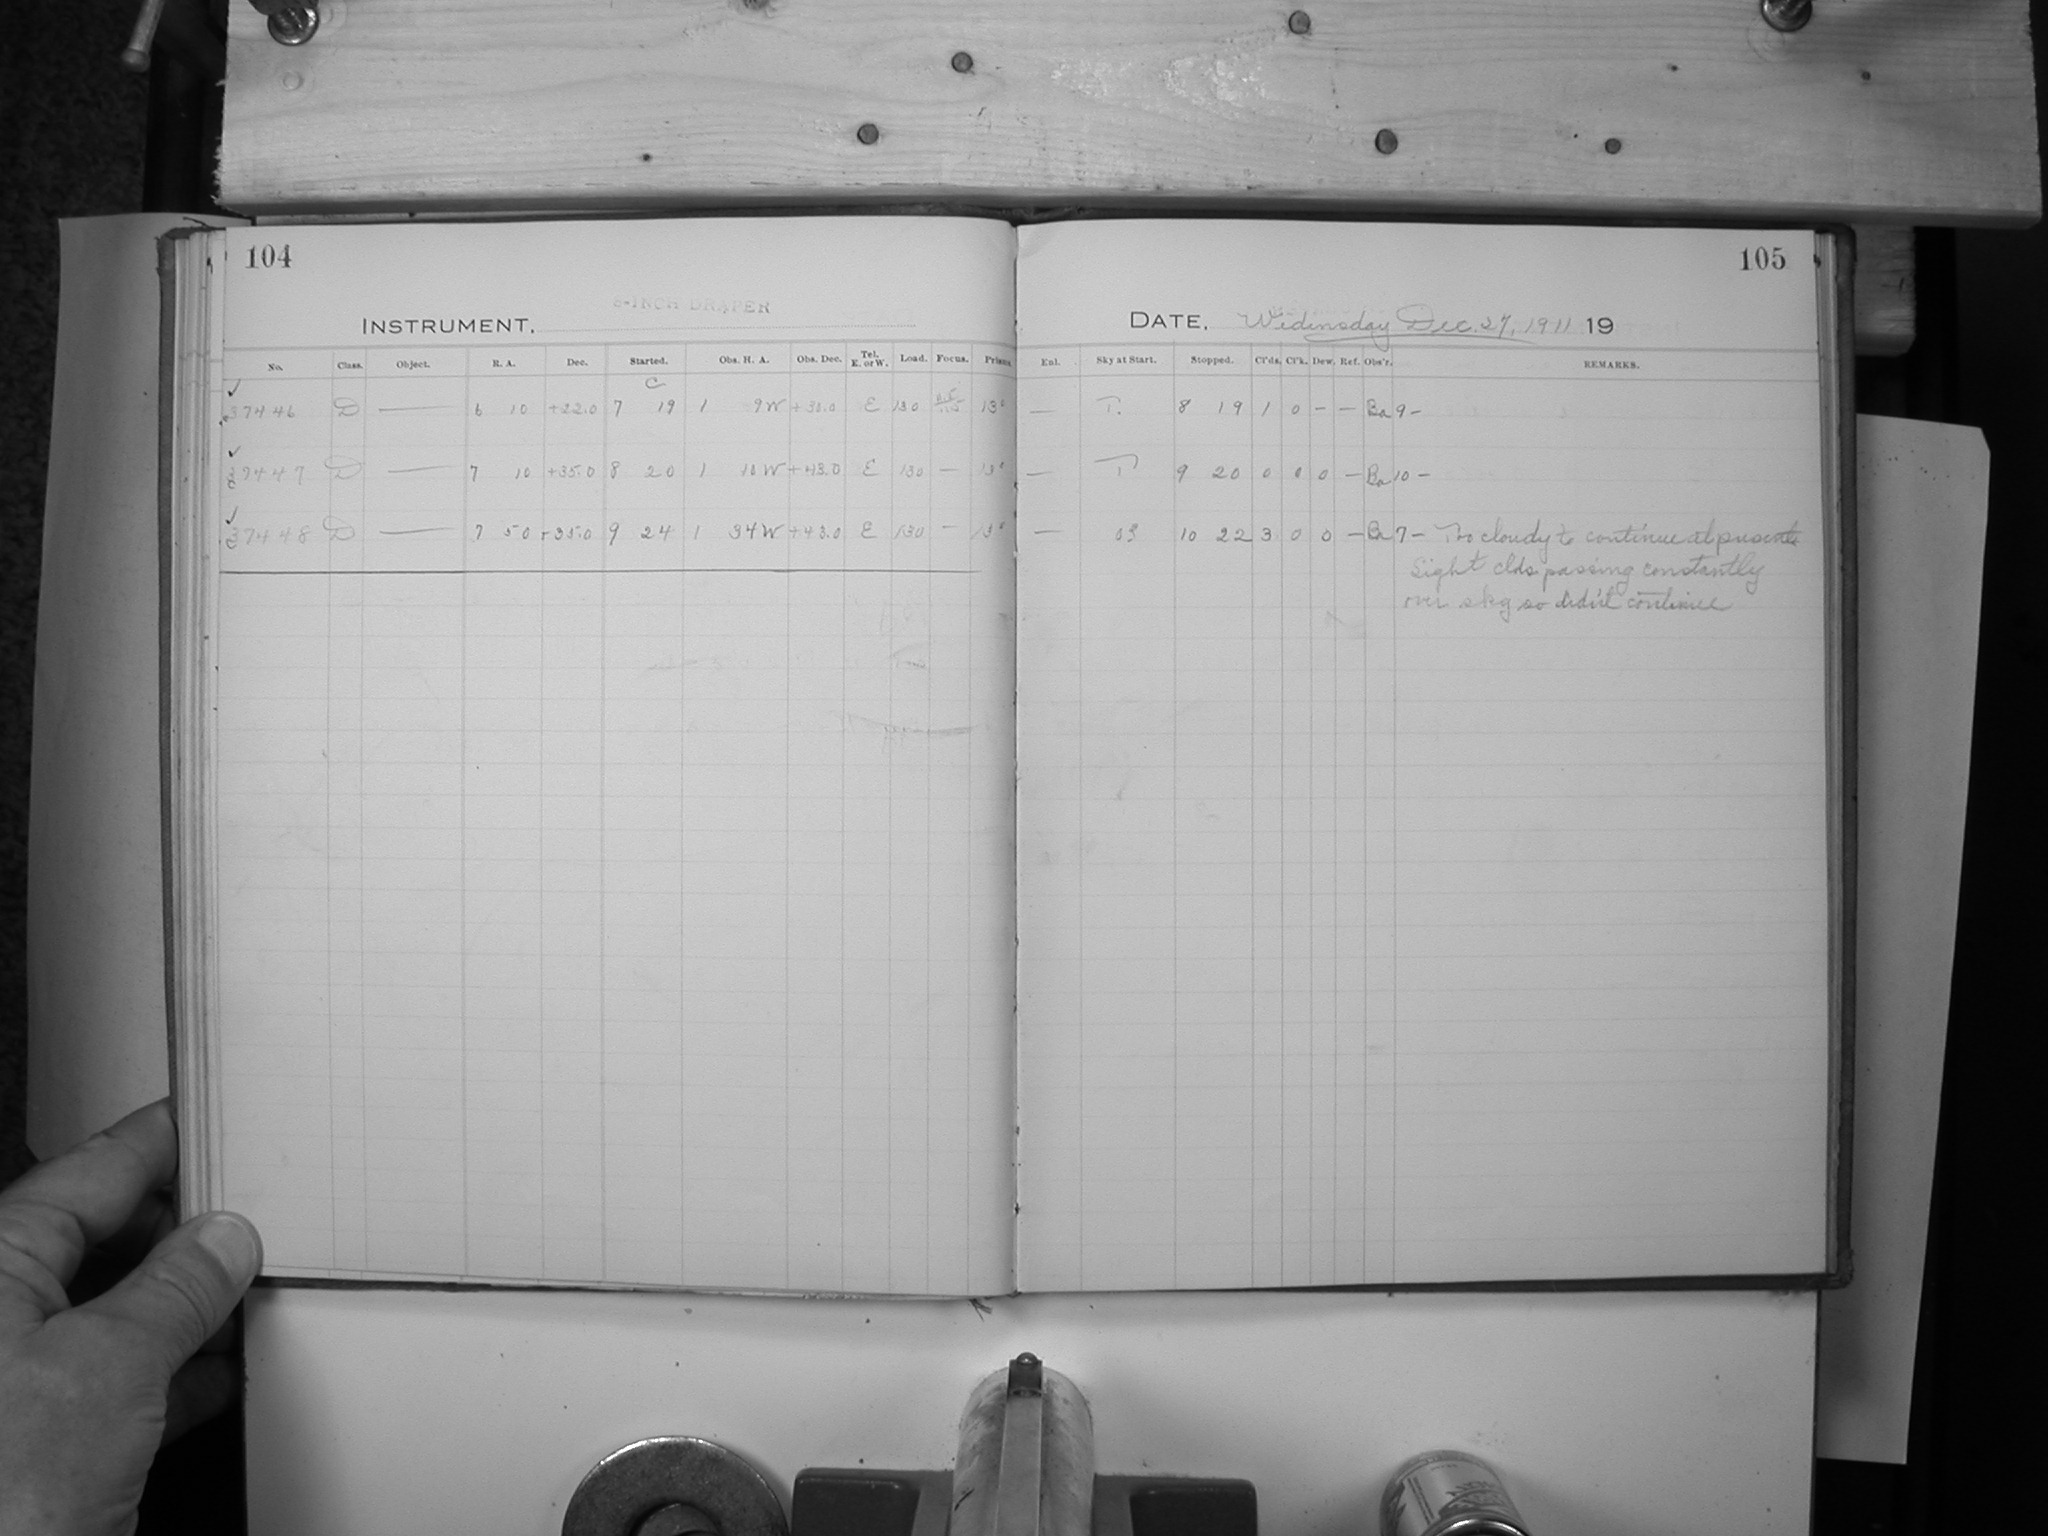 104
8-INCH DRAPER
INSTRUMENT,
No. Class. Object. R. A. Dec. Started. Obs. H. A. Obs. Dec. Tel. E. or W. Load. Focus. Prism
C
✓
37446 D — 6 10 +22.0 7 19 1 9W E 130 13°
✓
37447 D — 7 10 +35.0 8 20 1 10W +43.0 E 130 — 13°
✓
37448 D — 7 50 +35.0 9 24 1 34W +43.0 E 130 — 13°
105
DATE, Wedensday Dec. 27, 1911 19
Enl. Sky at Start. Stopped. Cl'ds. Cl'k. Dew. Ref. Obs'r. REMARKS.
— T. 8 19 1 0 – – Ba 9 –
— T 9 20 0 0 0 – Ba 10 –
— 10 22 3 0 0 – Ba 7 – Too cloudy to continue at present
Light clds passing constantly
over sky so didn't continue